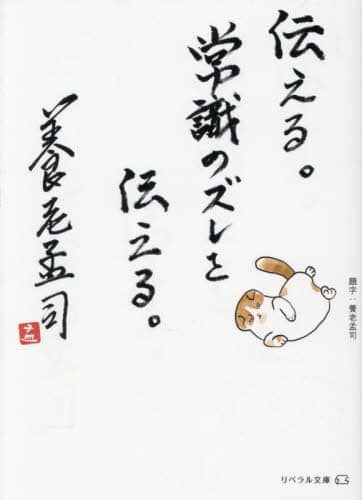 伝える。
常識のズレを
伝える。
養老孟司
孟
題字：養老孟司
リベラル文庫